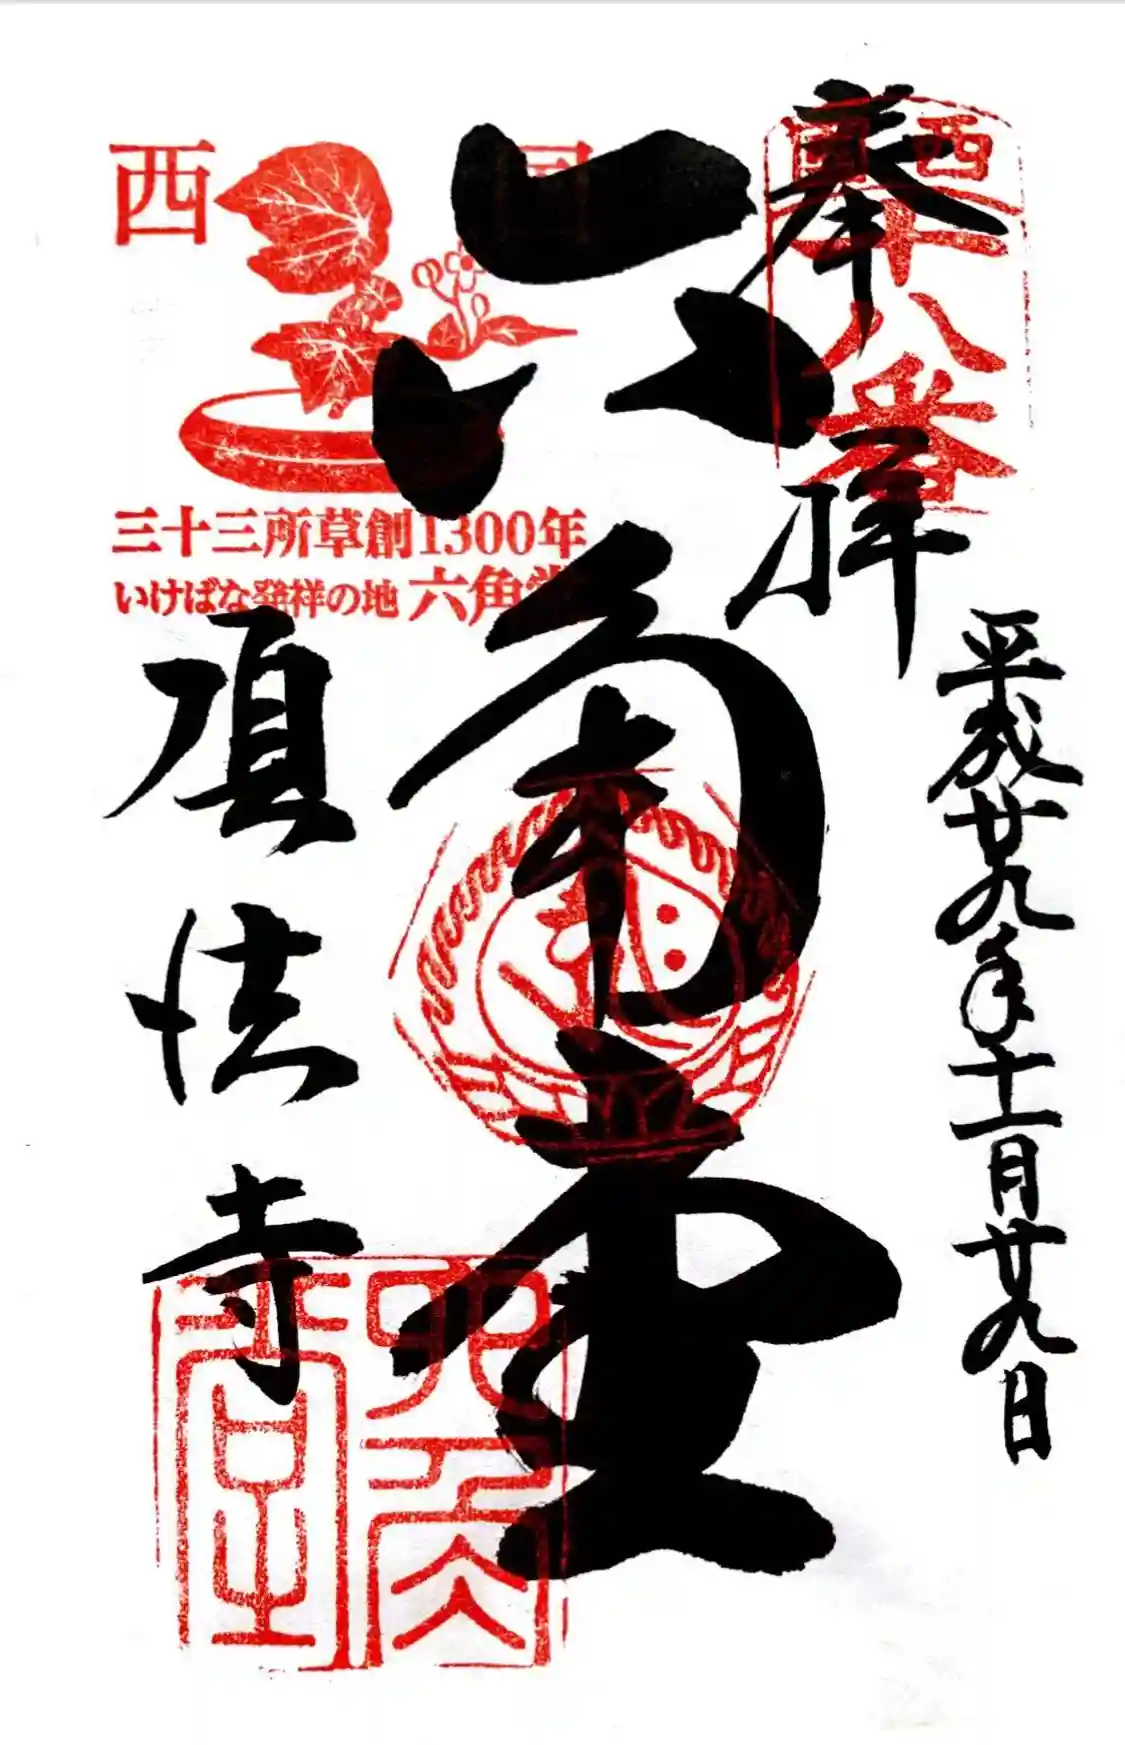 奉拝
平成廿九年十一月廿九日
西国
十八番
六角堂
西国
三十三所草創1300年
いけばな発祥の地 六角堂
頂法寺
六角堂